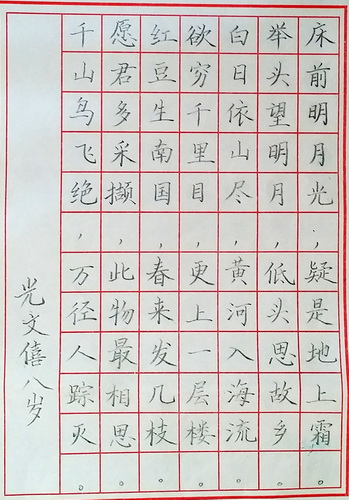 床前明月光，疑是地上霜。
举头望明月，低头思故乡。
白日依山尽，黄河入海流。
欲穷千里目，更上一层楼。
红豆生南国，春来发几枝。
愿君多采撷，此物最相思。
千山鸟飞绝，万径人踪灭。
光文僖八岁